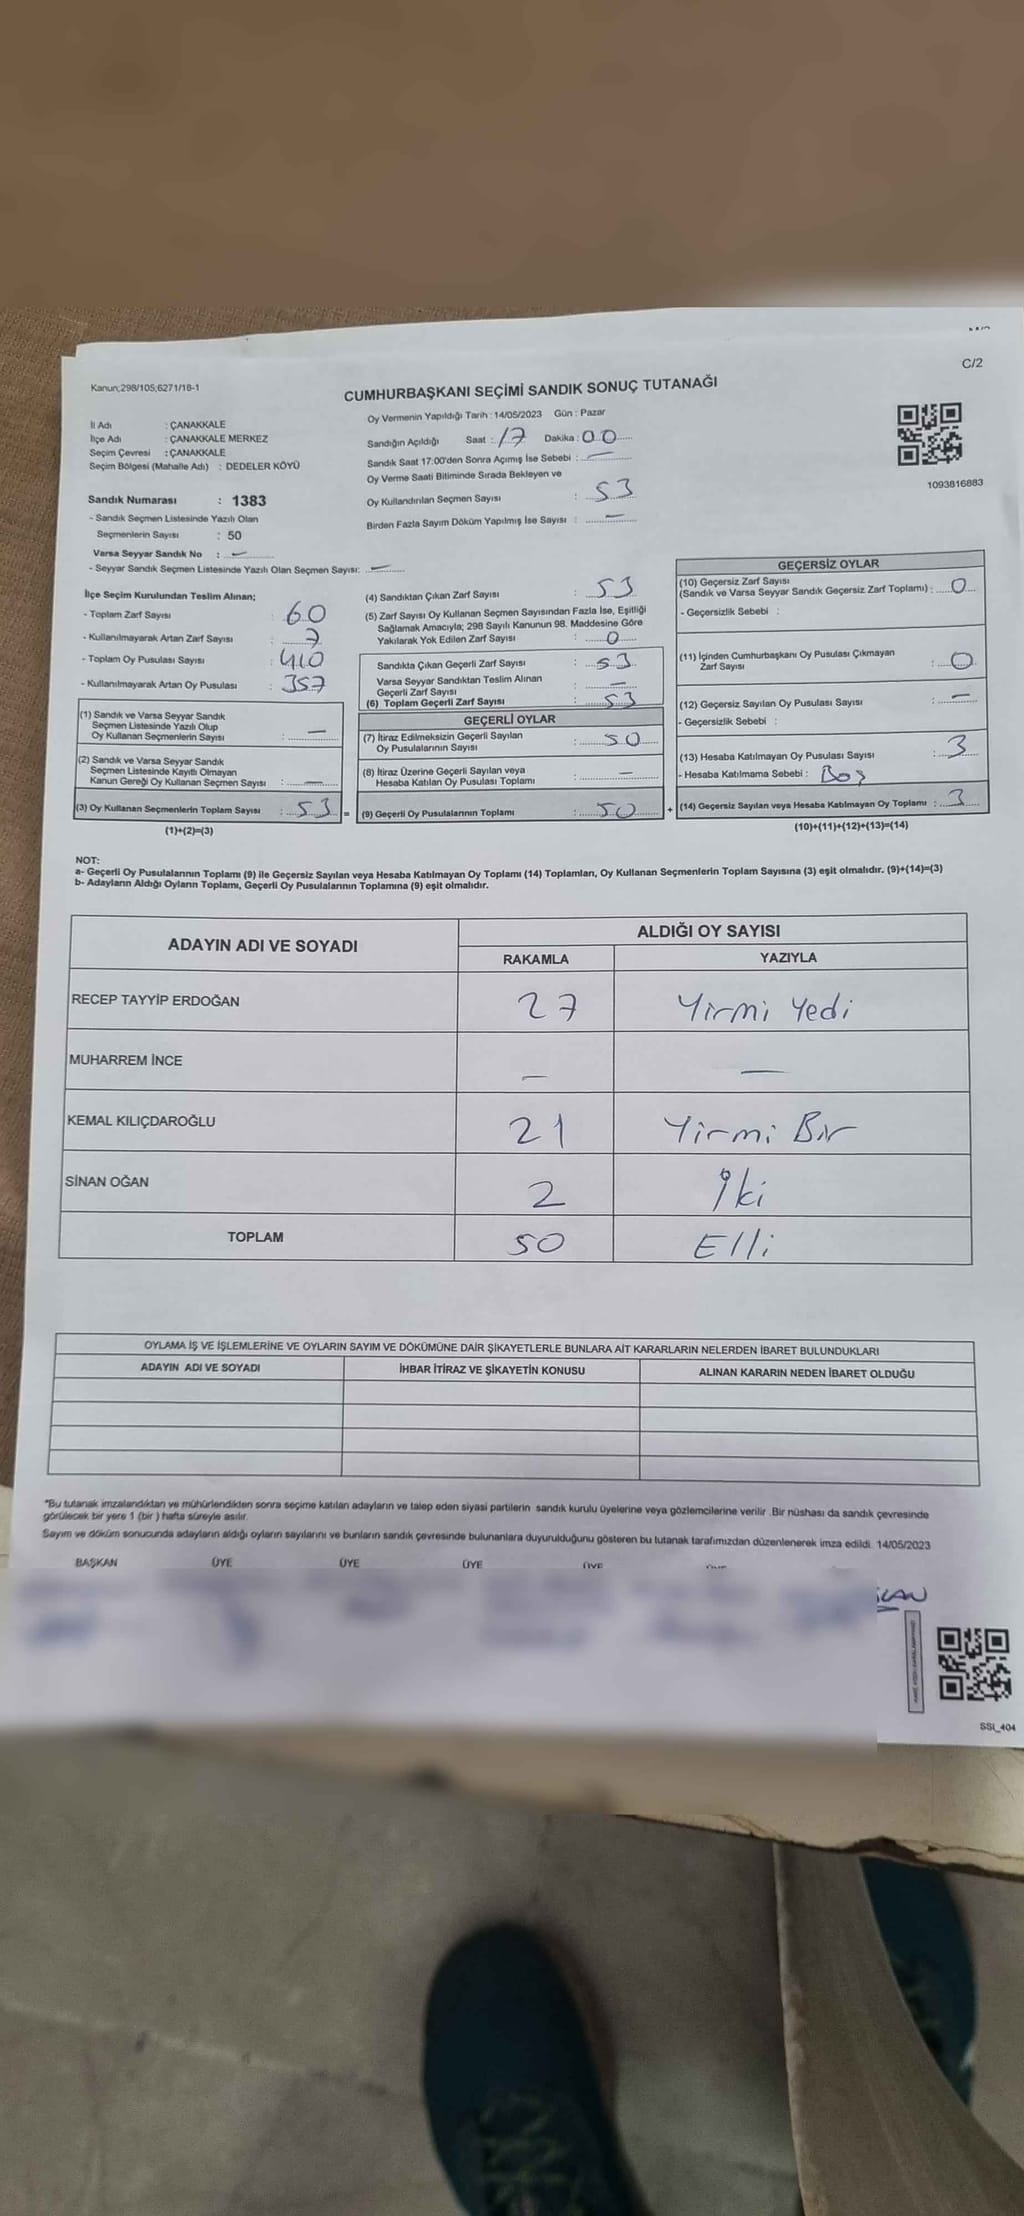 C/2
Kanun;298/105;6271/18-1
CUMHURBAŞKANI SEÇİMİ SANDIK SONUÇ TUTANAĞI
İl Adı : ÇANAKKALE
İlçe Adı : ÇANAKKALE MERKEZ
Seçim Çevresi : ÇANAKKALE
Seçim Bölgesi (Mahalle Adı) : DEDELER KÖYÜ
Oy Vermenin Yapıldığı Tarih : 14/05/2023 Gün : Pazar
Sandığın Açıldığı Saat : 17 Dakika : 00
Sandık Saat 17:00'den Sonra Açımış İse Sebebi : —
Oy Verme Saati Bitiminde Sırada Bekleyen ve
Oy Kullandırılan Seçmen Sayısı : 53
Birden Fazla Sayım Döküm Yapılmış İse Sayısı : —
1093816883
Sandık Numarası : 1383
- Sandık Seçmen Listesinde Yazılı Olan
Seçmenlerin Sayısı : 50
Varsa Seyyar Sandık No : —
- Seyyar Sandık Seçmen Listesinde Yazılı Olan Seçmen Sayısı: —
İlçe Seçim Kurulundan Teslim Alınan;
- Toplam Zarf Sayısı : 60
- Kullanılmayarak Artan Zarf Sayısı : 7
- Toplam Oy Pusulası Sayısı : 410
- Kullanılmayarak Artan Oy Pusulası : 357
(1) Sandık ve Varsa Seyyar Sandık
Seçmen Listesinde Yazılı Olup
Oy Kullanan Seçmenlerin Sayısı : —
(2) Sandık ve Varsa Seyyar Sandık
Seçmen Listesinde Kayıtlı Olmayan
Kanun Gereği Oy Kullanan Seçmen Sayısı : —
(3) Oy Kullanan Seçmenlerin Toplam Sayısı : 53 =
(1)+(2)=(3)
(4) Sandıktan Çıkan Zarf Sayısı : 53
(5) Zarf Sayısı Oy Kullanan Seçmen Sayısından Fazla İse, Eşitliği
Sağlamak Amacıyla; 298 Sayılı Kanunun 98. Maddesine Göre
Yakılarak Yok Edilen Zarf Sayısı : 0
Sandıkta Çıkan Geçerli Zarf Sayısı : 53
Varsa Seyyar Sandıktan Teslim Alınan
Geçerli Zarf Sayısı : —
(6) Toplam Geçerli Zarf Sayısı : 53
GEÇERLİ OYLAR
(7) İtiraz Edilmeksizin Geçerli Sayılan
Oy Pusulalarının Sayısı : 50
(8) İtiraz Üzerine Geçerli Sayılan veya
Hesaba Katılan Oy Pusulası Toplamı : —
(9) Geçerli Oy Pusulalarının Toplamı : 50 +
GEÇERSİZ OYLAR
(10) Geçersiz Zarf Sayısı
(Sandık ve Varsa Seyyar Sandık Geçersiz Zarf Toplamı) : 0
- Geçersizlik Sebebi :
(11) İçinden Cumhurbaşkanı Oy Pusulası Çıkmayan
Zarf Sayısı : 0
(12) Geçersiz Sayılan Oy Pusulası Sayısı : —
- Geçersizlik Sebebi :
(13) Hesaba Katılmayan Oy Pusulası Sayısı : 3
- Hesaba Katılmama Sebebi : Boş
(14) Geçersiz Sayılan veya Hesaba Katılmayan Oy Toplamı : 3
(10)+(11)+(12)+(13)=(14)
NOT:
a- Geçerli Oy Pusulalarının Toplamı (9) ile Geçersiz Sayılan veya Hesaba Katılmayan Oy Toplamı (14) Toplamları, Oy Kullanan Seçmenlerin Toplam Sayısına (3) eşit olmalıdır. (9)+(14)=(3)
b- Adayların Aldığı Oyların Toplamı, Geçerli Oy Pusulalarının Toplamına (9) eşit olmalıdır.
ADAYIN ADI VE SOYADI
ALDIĞI OY SAYISI
RAKAMLA YAZIYLA
RECEP TAYYİP ERDOĞAN 27 Yirmi Yedi
MUHARREM İNCE — —
KEMAL KILIÇDAROĞLU 21 Yirmi Bir
SİNAN OĞAN 2 İki
TOPLAM 50 Elli
OYLAMA İŞ VE İŞLEMLERİNE VE OYLARIN SAYIM VE DÖKÜMÜNE DAİR ŞİKAYETLERLE BUNLARA AİT KARARLARIN NELERDEN İBARET BULUNDUKLARI
ADAYIN ADI VE SOYADI İHBAR İTİRAZ VE ŞİKAYETİN KONUSU ALINAN KARARIN NEDEN İBARET OLDUĞU
*Bu tutanak imzalandıktan ve mühürlendikten sonra seçime katılan adayların ve talep eden siyasi partilerin sandık kurulu üyelerine veya gözlemcilerine verilir .Bir nüshası da sandık çevresinde
görülecek bir yere 1 (bir ) hafta süreyle asılır.
Sayım ve döküm sonucunda adayların aldığı oyların sayılarını ve bunların sandık çevresinde bulunanlara duyurulduğunu gösteren bu tutanak tarafımızdan düzenlenerek imza edildi. 14/05/2023
BAŞKAN ÜYE ÜYE ÜYE ÜYE
SSI_404